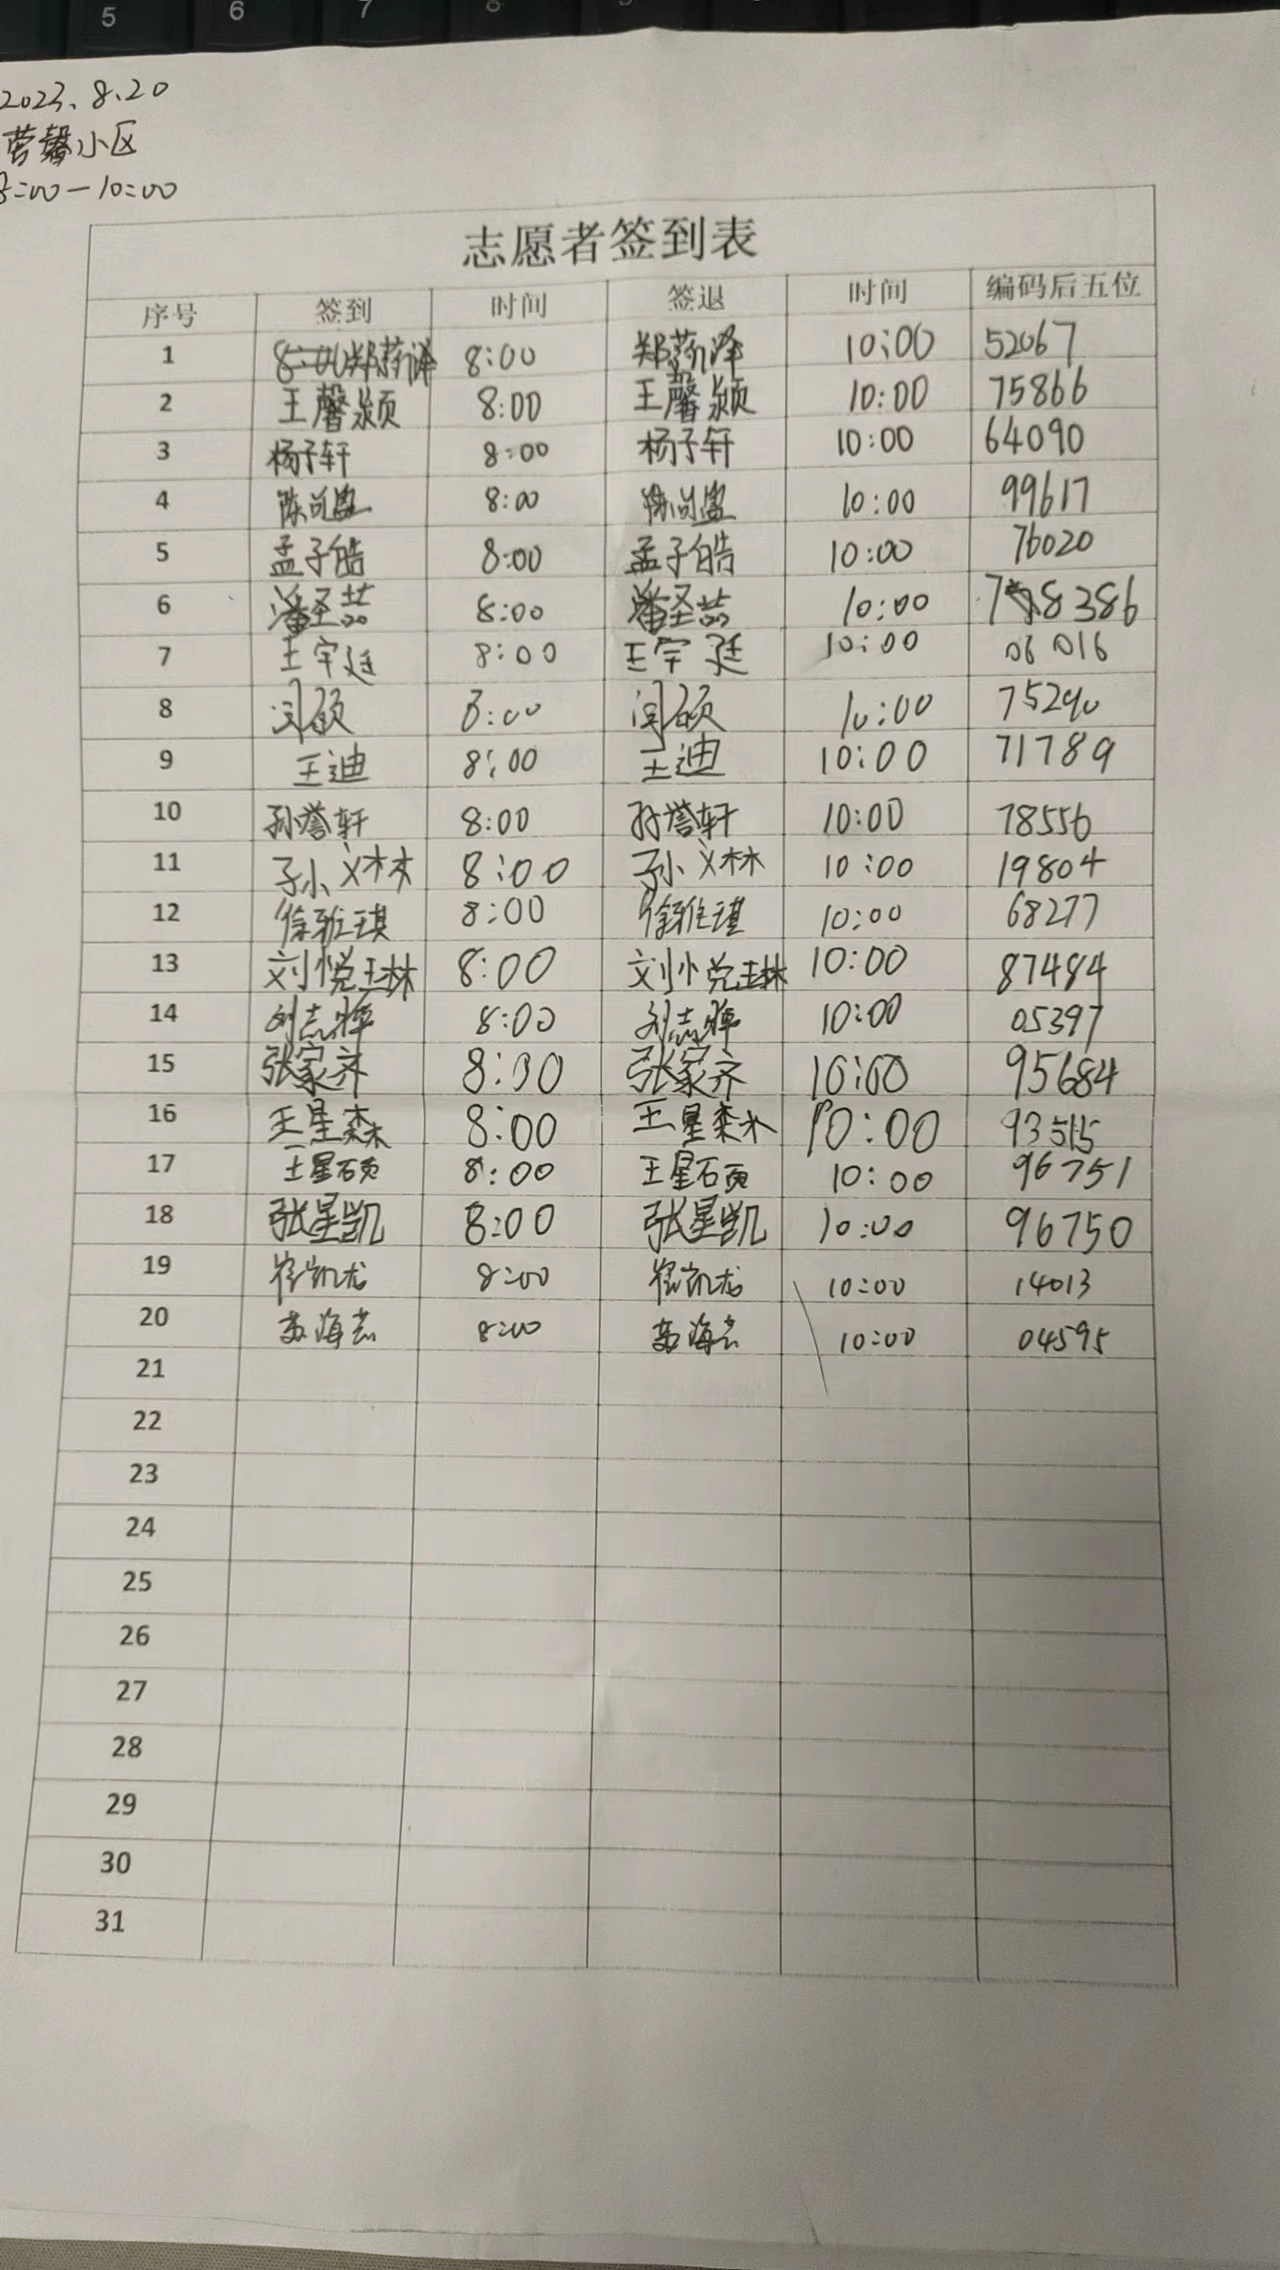 5 6 7 8
2023.8.20
营馨小区
8:00-10:00
志愿者签到表
序号 签到 时间 签退 时间 编码后五位
1 8:00 8:00 10:00 52067
2 王馨颍 8:00 王馨颍 10:00 75866
3 杨子轩 8:00 杨子轩 10:00 64090
4 8:00 10:00 99617
5 孟子皓 8:00 孟子皓 10:00 76020
6 潘圣喆 8:00 潘圣喆 10:00 88386
7 王宇廷 8:00 王宇廷 10:00 06016
8 闫硕 8:00 闫硕 10:00 75290
9 王迪 8:00 王迪 10:00 71789
10 孙誉轩 8:00 孙誉轩 10:00 78556
11 孙义林 8:00 孙义林 10:00 19804
12 徐雅琪 8:00 徐雅琪 10:00 68277
13 刘悦琳 8:00 刘悦琳 10:00 87484
14 刘志 8:00 刘志 10:00 05397
15 张家齐 8:00 张家齐 10:00 95684
16 王星森 8:00 王星森 10:00 93515
17 王星硕 8:00 王星硕 10:00 96751
18 张星凯 8:00 张星凯 10:00 96750
19 崔凯龙 8:00 崔凯龙 10:00 14013
20 苏海 8:00 苏海 10:00 04595
21
22
23
24
25
26
27
28
29
30
31